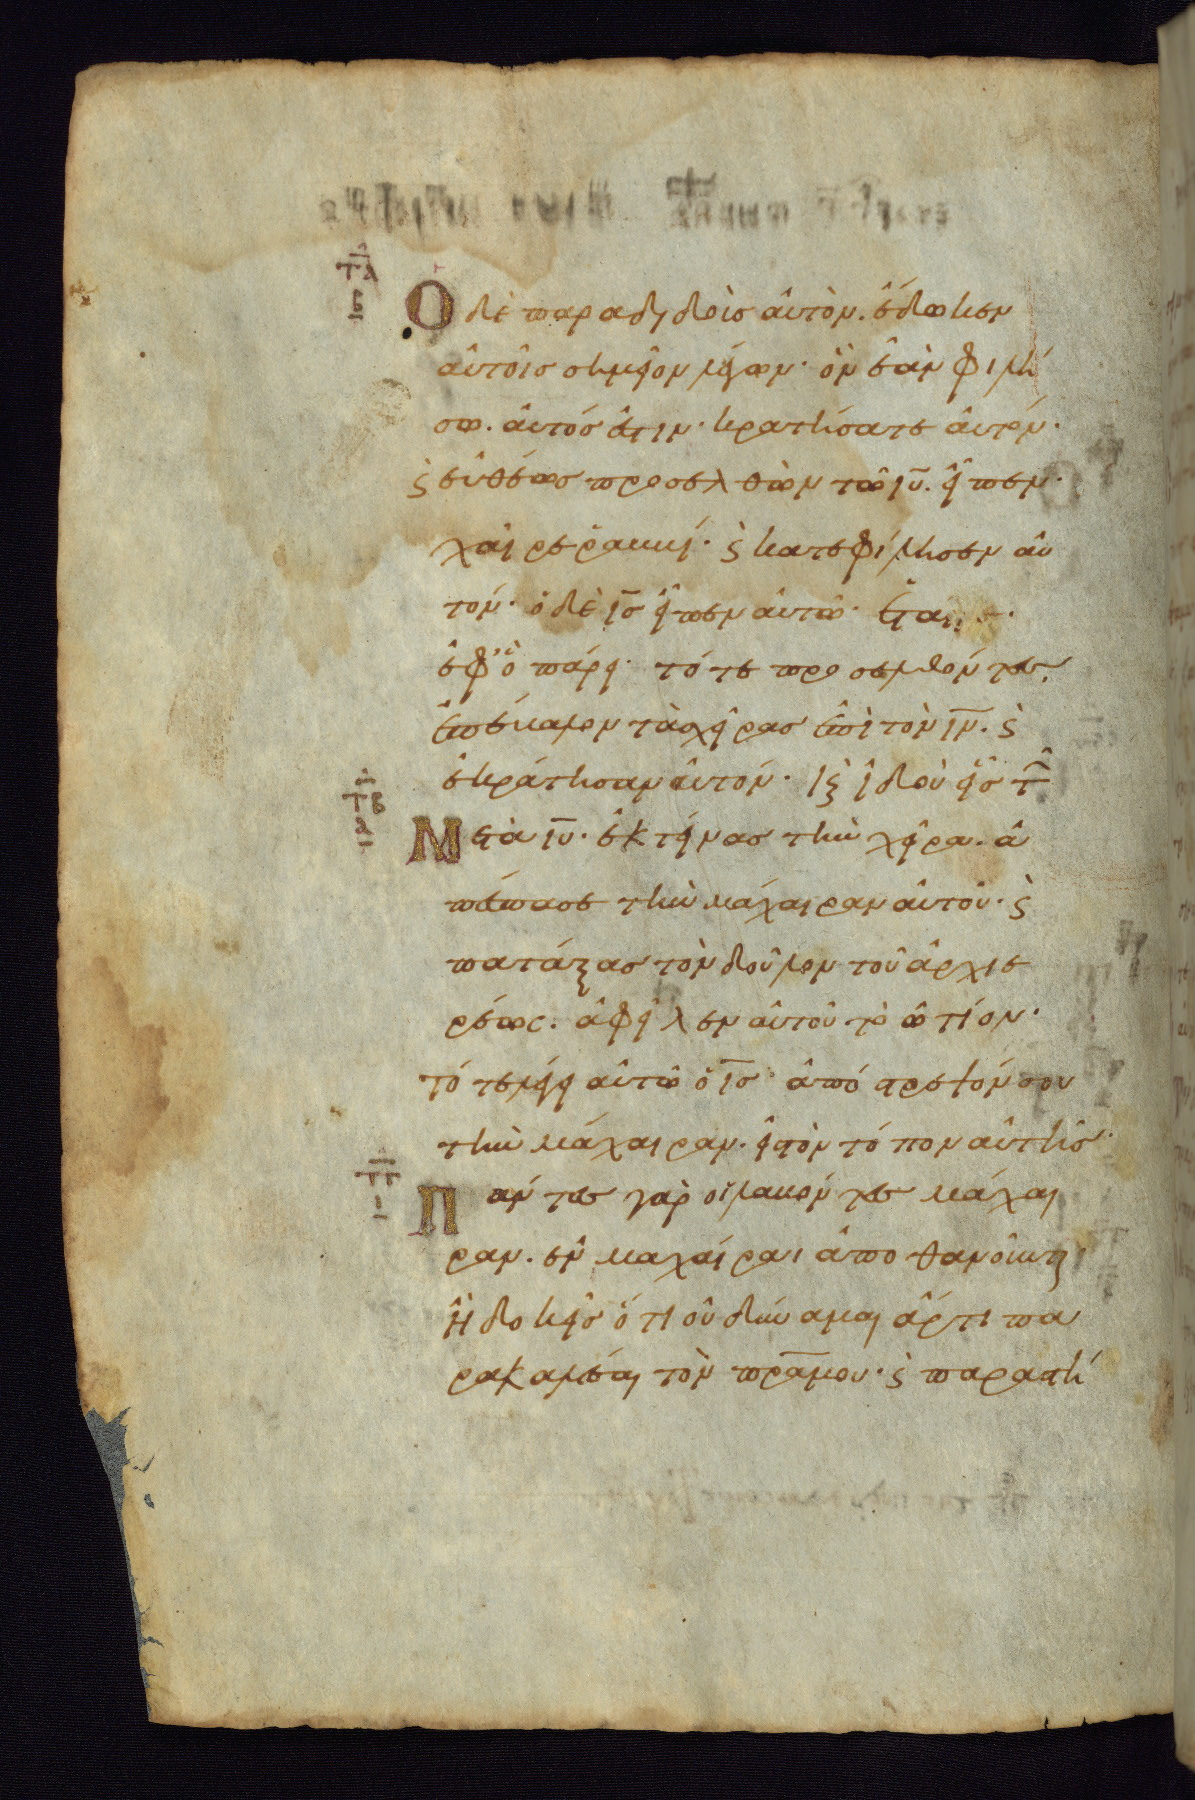 τλ
β
Ὁ δὲ παραδιδοὺς αὐτὸν. ἔδωκεν
αὐτοῖς σημεῖον λέγων· ὃν ἐὰν φιλή
σω. αὐτός ἐστιν· κρατήσατε αὐτόν·
ϛ εὐθέως προσελθὼν τῶ ιυ. εἶπεν·
χαῖρε ῥαββί· ϛ κατεφίλησεν αὐ
τόν· ὁ δὲ ις εἶπεν αὐτῶ· ἑται
ἐφ' ὃ πάρει· τότε προσελθόντες,
ἐπέβαλον τὰς χεῖρας ἐπὶ τὸν ιν. ϛ
ἐκράτησαν αὐτόν· ιξ ἰδοὺ εἷς τ
τβ
α
Μετὰ ιυ· ἐκτείνας τὴν χεῖρα. ἀ
πέσπασε τὴν μάχαιραν αὐτοῦ· ϛ
πατάξας τὸν δοῦλον τοῦ ἀρχιε
ρέως. ἀφεῖλεν αὐτοῦ τὸ ὠτίον·
τότε λέγει αὐτῶ ὁ ις· ἀπόστρεψόν σου
τὴν μάχαιραν. εἰς τὸν τόπον αὐτῆς·
τγ
ι
Πάντες γὰρ οἱ λαβόντες μάχαι
ραν. ἐν μαχαίραι ἀποθανοῦνται
Ἢ δοκεῖς ὅτι οὐ δύναμαι ἄρτι πα
ρακαλέσαι τὸν πρα μου· ϛ παραστή